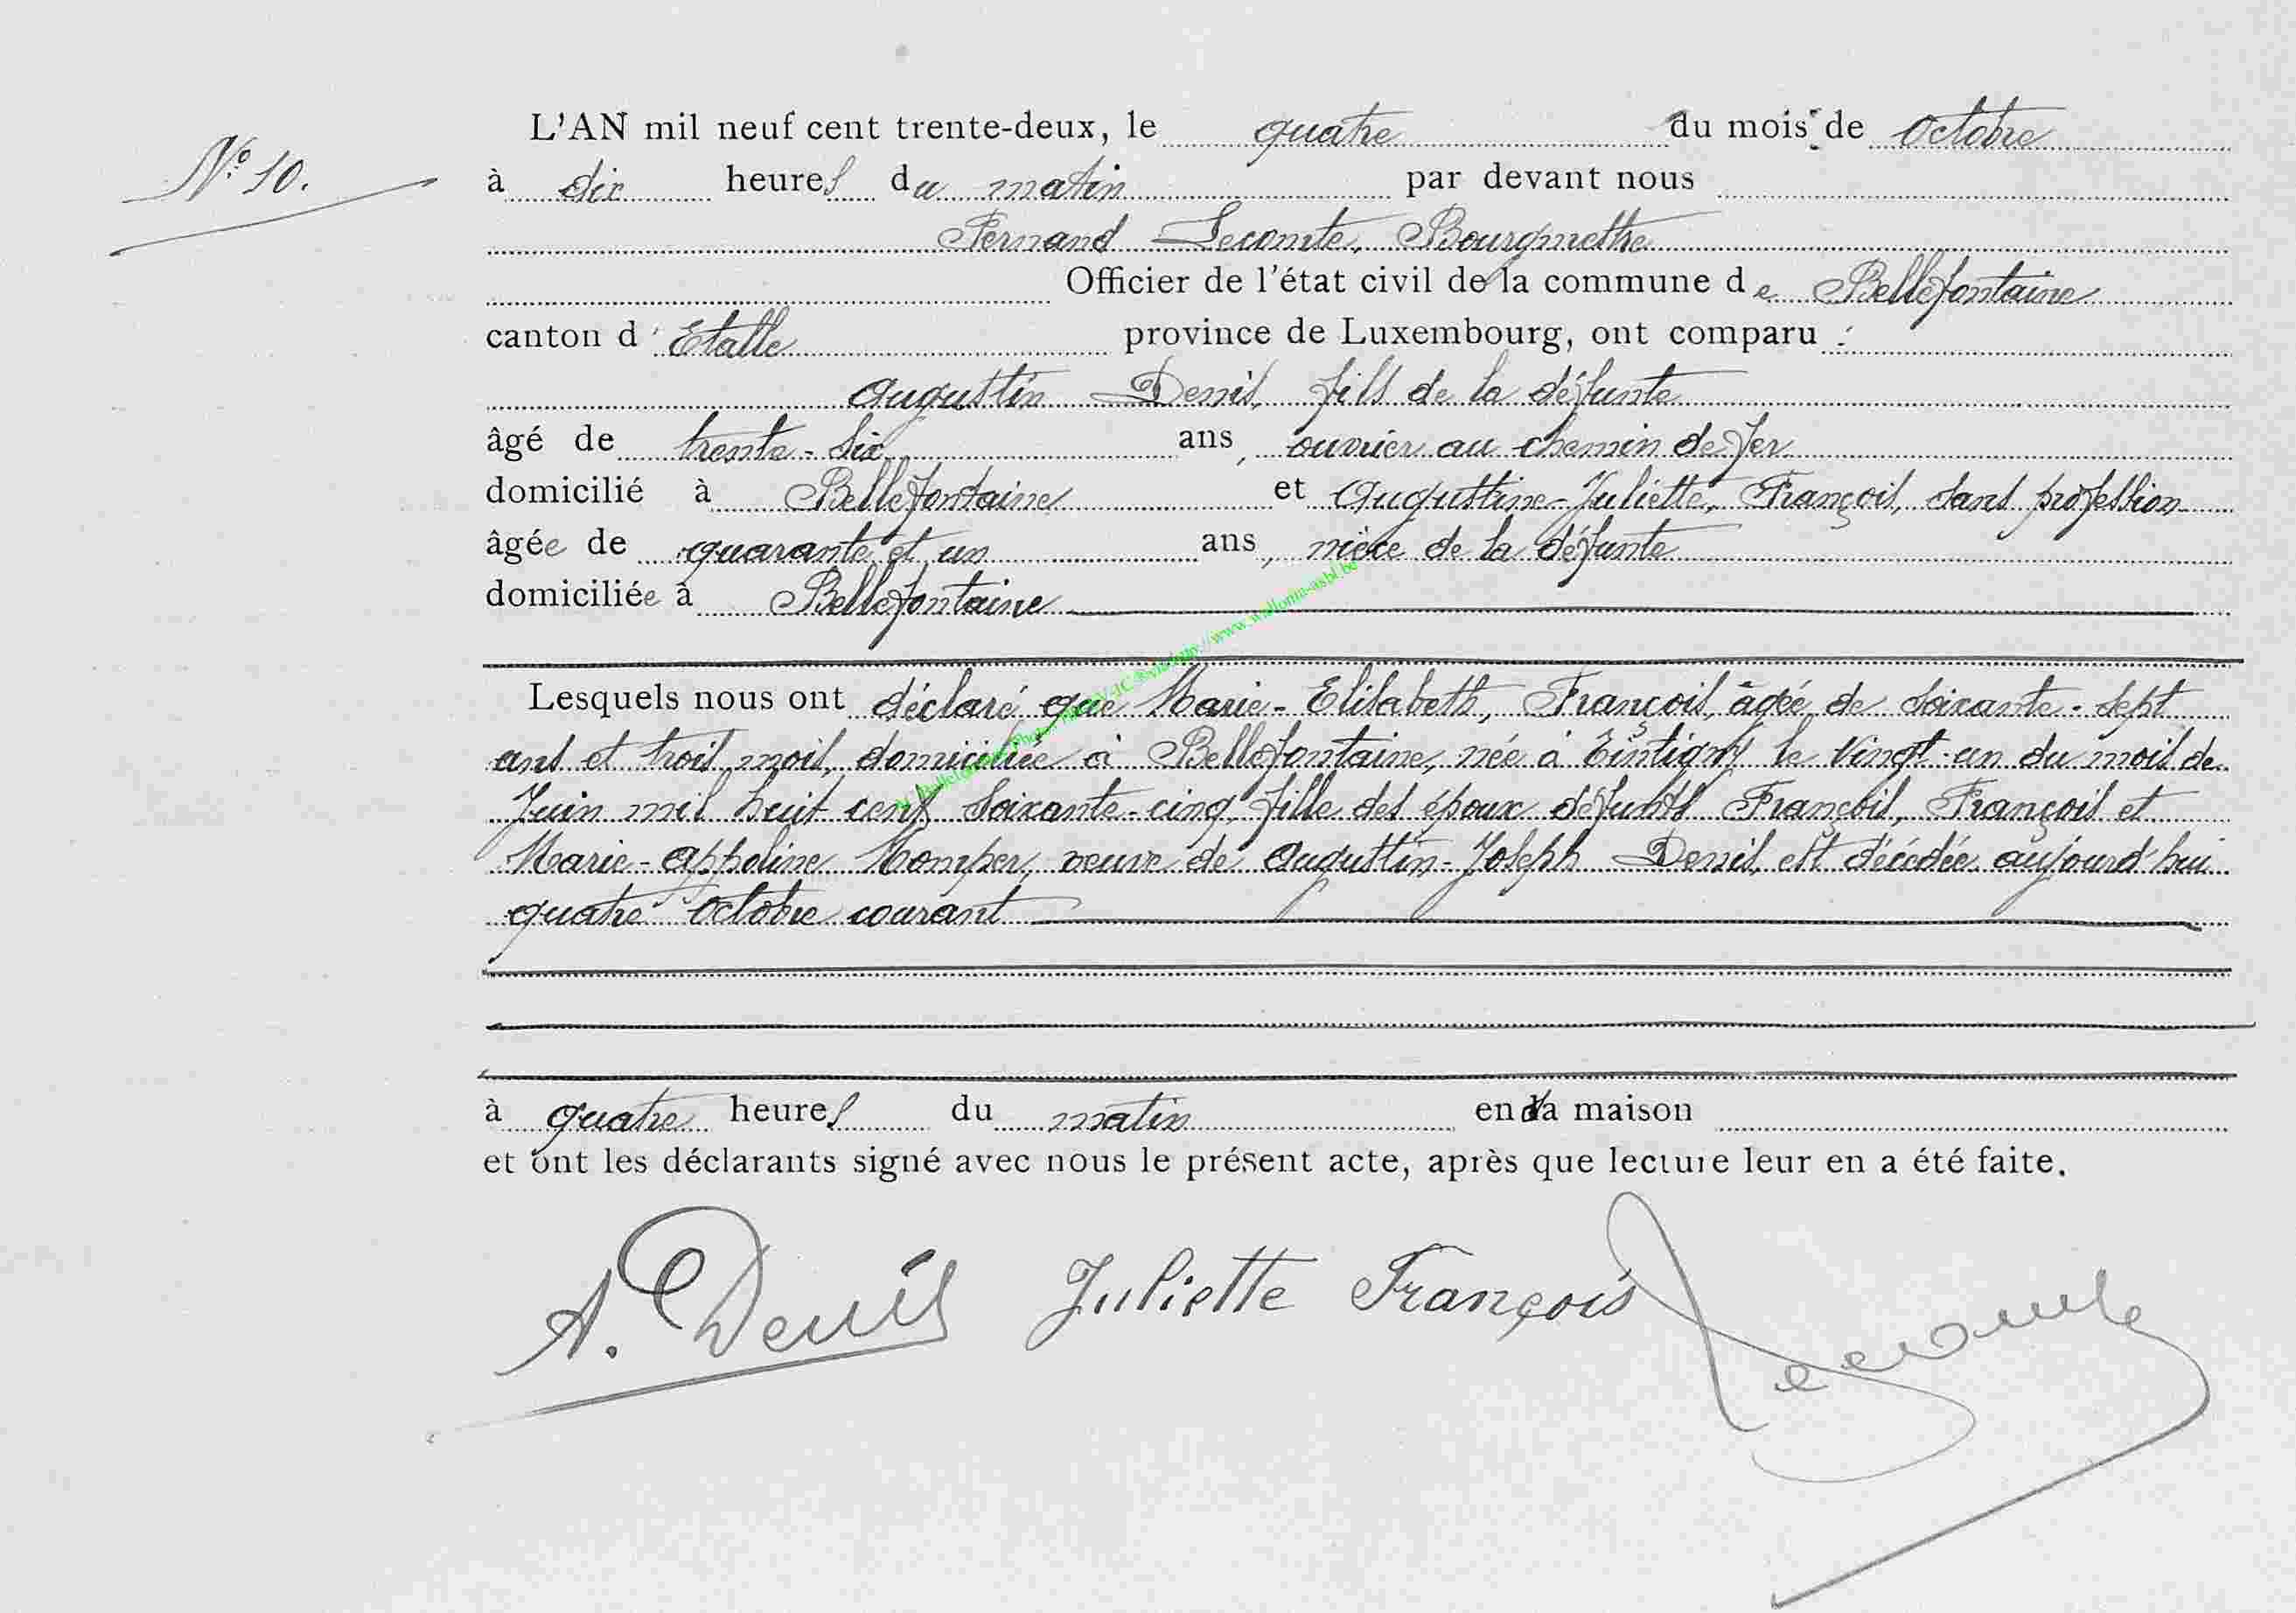 N° 10.
L'AN mil neuf cent trente-deux, le quatre du mois de Octobre
à dix heures du matin par devant nous
Fernand Lecomte, Bourgmestre
Officier de l'état civil de la commune de Bellefontaine
canton d'Etalle province de Luxembourg, ont comparu :
Augustin Denis, fils de la défunte
âgé de trente-six ans, ouvrier au chemin de fer
domicilié à Bellefontaine et Augustine-Juliette, François, sans profession
âgée de quarante et un ans, nièce de la défunte
domiciliée à Bellefontaine
Lesquels nous ont déclaré que Marie-Elisabeth, François, âgée de soixante-sept
ans et trois mois, domiciliée à Bellefontaine, née à Tintigny le vingt-un du mois de
Juin mil huit cent soixante-cinq, fille des époux défunts François, François et
Marie-Appoline Momper, veuve de Augustin-Joseph Denis, est décédée aujourd'hui
quatre Octobre courant
à quatre heures du matin en sa maison
et ont les déclarants signé avec nous le présent acte, après que lecture leur en a été faite.
A. Denis Juliette François Lecomte
http://www.wallonia-asbl.be